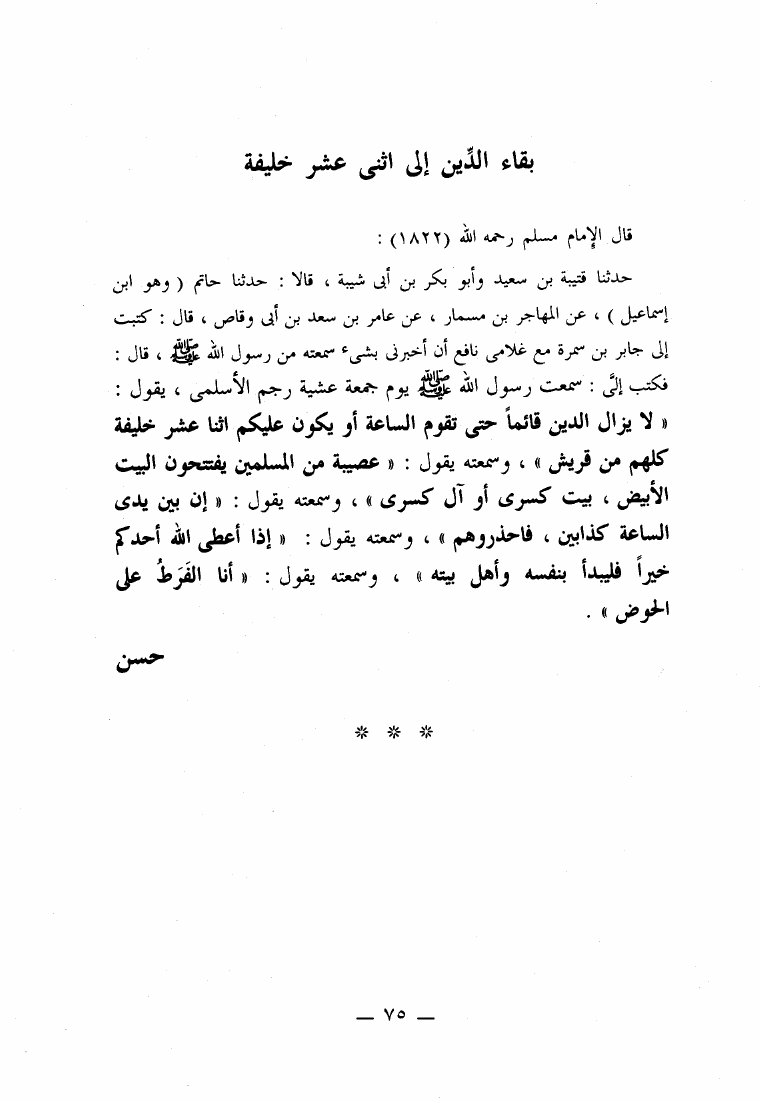 بقاء الدِّين إلى اثنى عشر خليفة
قال الإمام مسلم رحمه الله (١٨٢٢) :
حدثنا قتيبة بن سعيد وأبو بكر بن أبى شيبة ، قالا : حدثنا حاتم ( وهو ابن
إسماعيل ) ، عن المهاجر بن مسمار ، عن عامر بن سعد بن أبى وقاص ، قال : كتبت
إلى جابر بن سمرة مع غلامى نافع أن أخبرنى بشىء سمعته من رسول الله ﷺ ، قال :
فكتب إلىَّ : سمعت رسول الله ﷺ يوم جمعة عشية رجم الأسلمى ، يقول :
« لا يزال الدين قائماً حتى تقوم الساعة أو يكون عليكم اثنا عشر خليفة
كلهم من قريش » ، وسمعته يقول : « عصيبة من المسلمين يفتتحون البيت
الأبيض ، بيت كسرى أو آل كسرى » ، وسمعته يقول : « إن بين يدى
الساعة كذابين ، فاحذروهم » ، وسمعته يقول : « إذا أعطى الله أحدكم
خيراً فليبدأ بنفسه وأهل بيته » ، وسمعته يقول : « أنا الفَرَطُ على
الحوض » .
حسن
* * *
— ٧٥ —